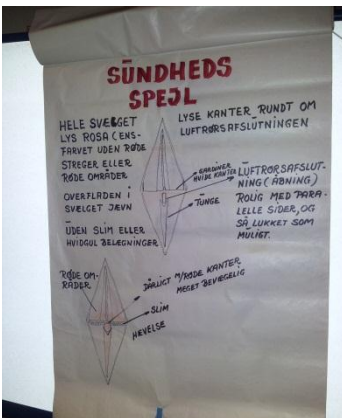 SUNDHEDS
SPEJL
HELE SVÆLGET
LYS ROSA (ENS-
FARVET UDEN RØDE
STREGER ELLER
RØDE OMRÅDER
OVERFLADEN I
SVÆLGET JÆVN
UDEN SLIM ELLER
HVIDGUL BELÆGNINGER
LYSE KANTER RUNDT OM
LUFTRØRSAFSLUTNINGEN
GARDINER
HVIDE KANTER
TUNGE
LUFTRØRSAFSLUT-
NING (ÅBNING)
ROLIG MED PARA-
LELLE SIDER, OG
SÅ LUKKET SOM
MULIGT.
RØDE OM-
RÅDER
DÅRLIGT M/RØDE KANTER
MEGET BEVÆGELIG
SLIM
HÆVELSE